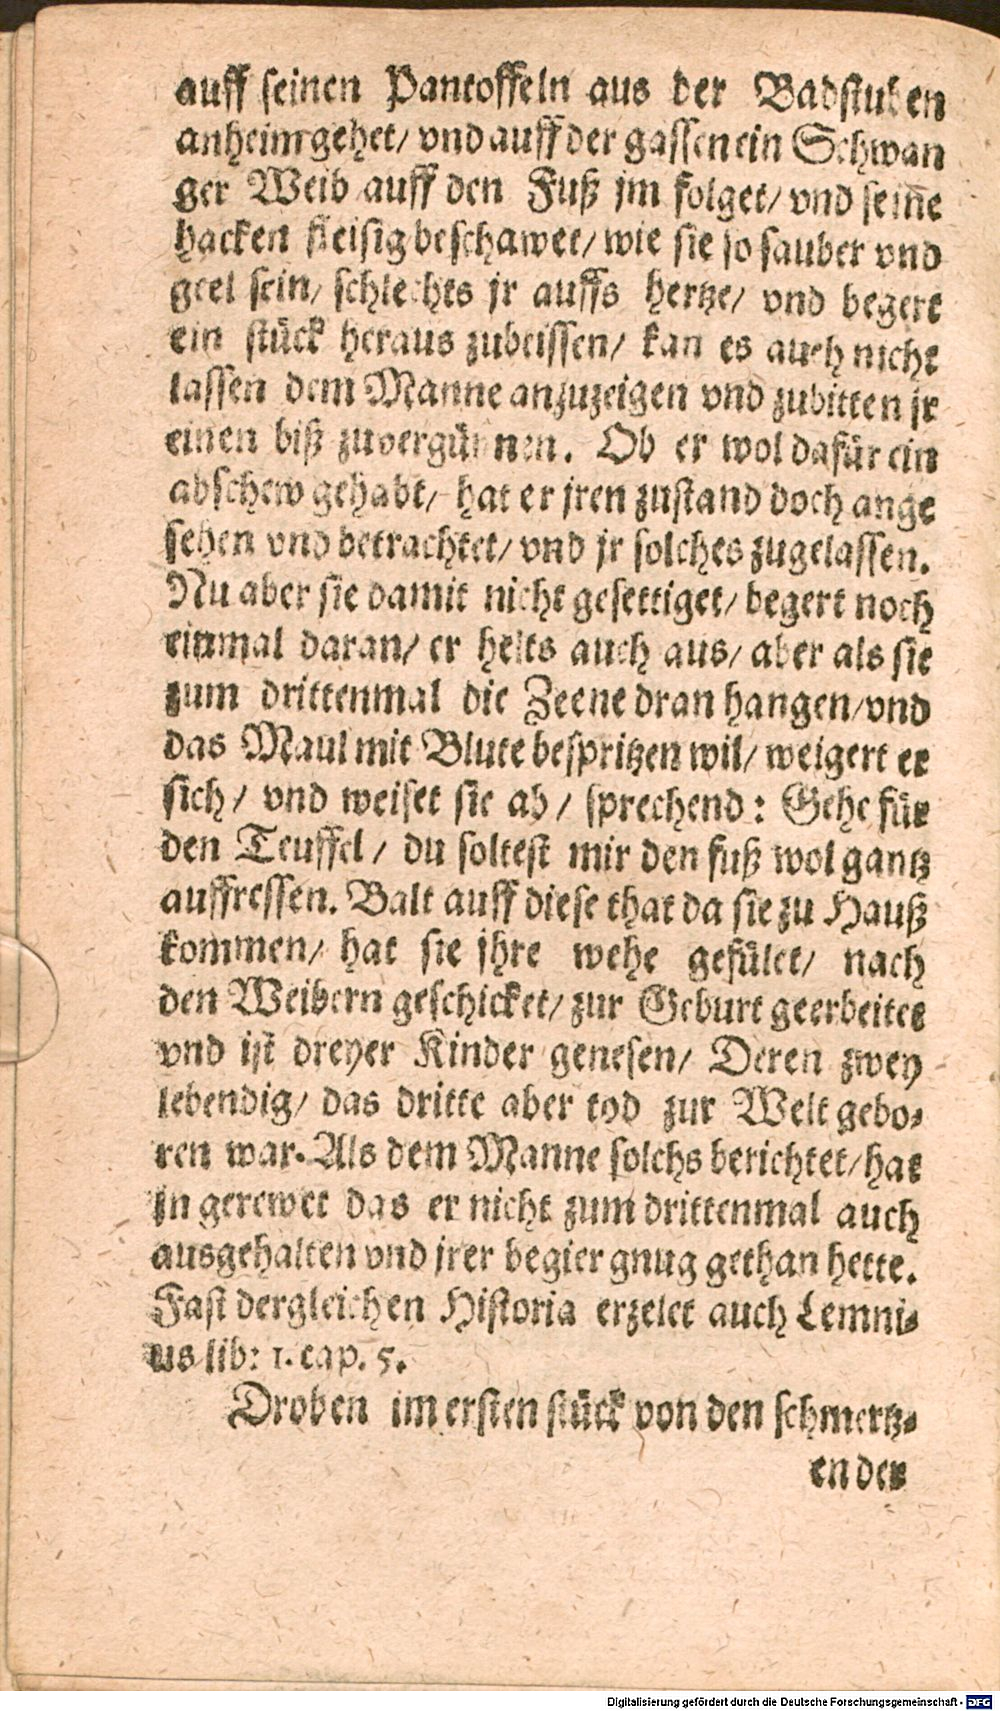 auff seinen Pantoffeln aus der Badstuben
anheim gehet/ vnd auff der gassen ein Schwan
ger Weib auff den Fuß jm folget/ vnd seine
hacken fleisig beschawet/ wie sie so sauber vnd
geel sein/ schlechts jr auffs hertze/ vnd begert
ein stück heraus zubeissen/ kan es auch nicht
lassen dem Manne anzuzeigen vnd zubitten jr
einen biß zuvergünnen. Ob er wol dafür ein
abschew gehabt/ hat er jren zustand doch ange
sehen vnd betrachtet/ vnd jr solches zugelassen.
Nu aber sie damit nicht gesettiget/ begert noch
einmal daran/ er helts auch aus/ aber als sie
zum drittenmal die Zeene dran hangen/ vnd
das Maul mit Blute bespritzen wil/ weigert er
sich/ vnd weiset sie ab/ sprechend: Gehe für
den Teuffel/ du soltest mir den fuß wol gantz
auffressen. Balt auff diese that da sie zu Hauß
kommen/ hat sie jhre wehe gefület/ nach
den Weibern geschicket/ zur Geburt geerbeitet
vnd ist dreyer Kinder genesen/ Deren zwey
lebendig/ das dritte aber tod zur Welt gebo-
ren war. Als dem Manne solchs berichtet/ hat
jn gerewet das er nicht zum drittenmal auch
ausgehalten vnd jrer begier gnug gethan hette.
Fast dergleichen Historia erzelet auch Lemni-
us lib: 1. cap. 5.
Droben im ersten stück von den schmertz-
en der
Digitalisierung gefördert durch die Deutsche Forschungsgemeinschaft - DFG